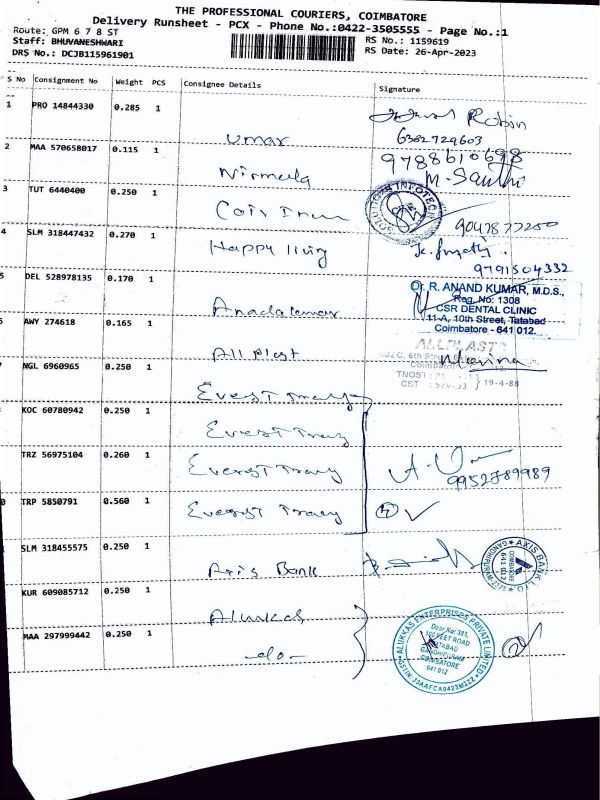 THE PROFESSIONAL COURIERS, COIMBATORE
Delivery Runsheet - PCX - Phone No.:0422-3505555 - Page No.:1
Route: GPM 6 7 8 ST
Staff: BHUVANESHWARI
RS No.: 1159619
DRS No.: DCJB115961901
RS Date: 26-Apr-2023
S No Consignment No Weight PCS Consignee Details Signature
1 PRO 14844330 0.285 1 Umar Robin
6382729603
2 MAA 570658017 0.115 1 Nirmala 9788610698
M. Santhi
3 TUT 6440400 0.250 1
4 SLM 318447432 0.270 1 Happy living
9791504332
5 DEL 528978135 0.170 1 Anandakumar
Dr. R. ANAND KUMAR, M.D.S.,
Reg. No: 1308
CSR DENTAL CLINIC
11-A, 10th Street, Tatabad
Coimbatore - 641 012.
6 AWY 274618 0.165 1 All Plast
ALLPLAST
19-4-88
NGL 6960965 0.250 1
KOC 60780942 0.250 1
TRZ 56975104 0.260 1
TRP 5850791 0.560 1
4
SLM 318455575 0.250 1 Axis Bank
AXIS BANK LTD
KUR 609085712 0.250 1 Alukkas
MAA 297999442 0.250 1 -do-
ALUKKAS ENTERPRISES PRIVATE LIMITED
Door No: 393,
100 FEET ROAD
TATABAD
COIMBATORE
641 012
GSTIN: 33AAFCA0423M2ZZ
2